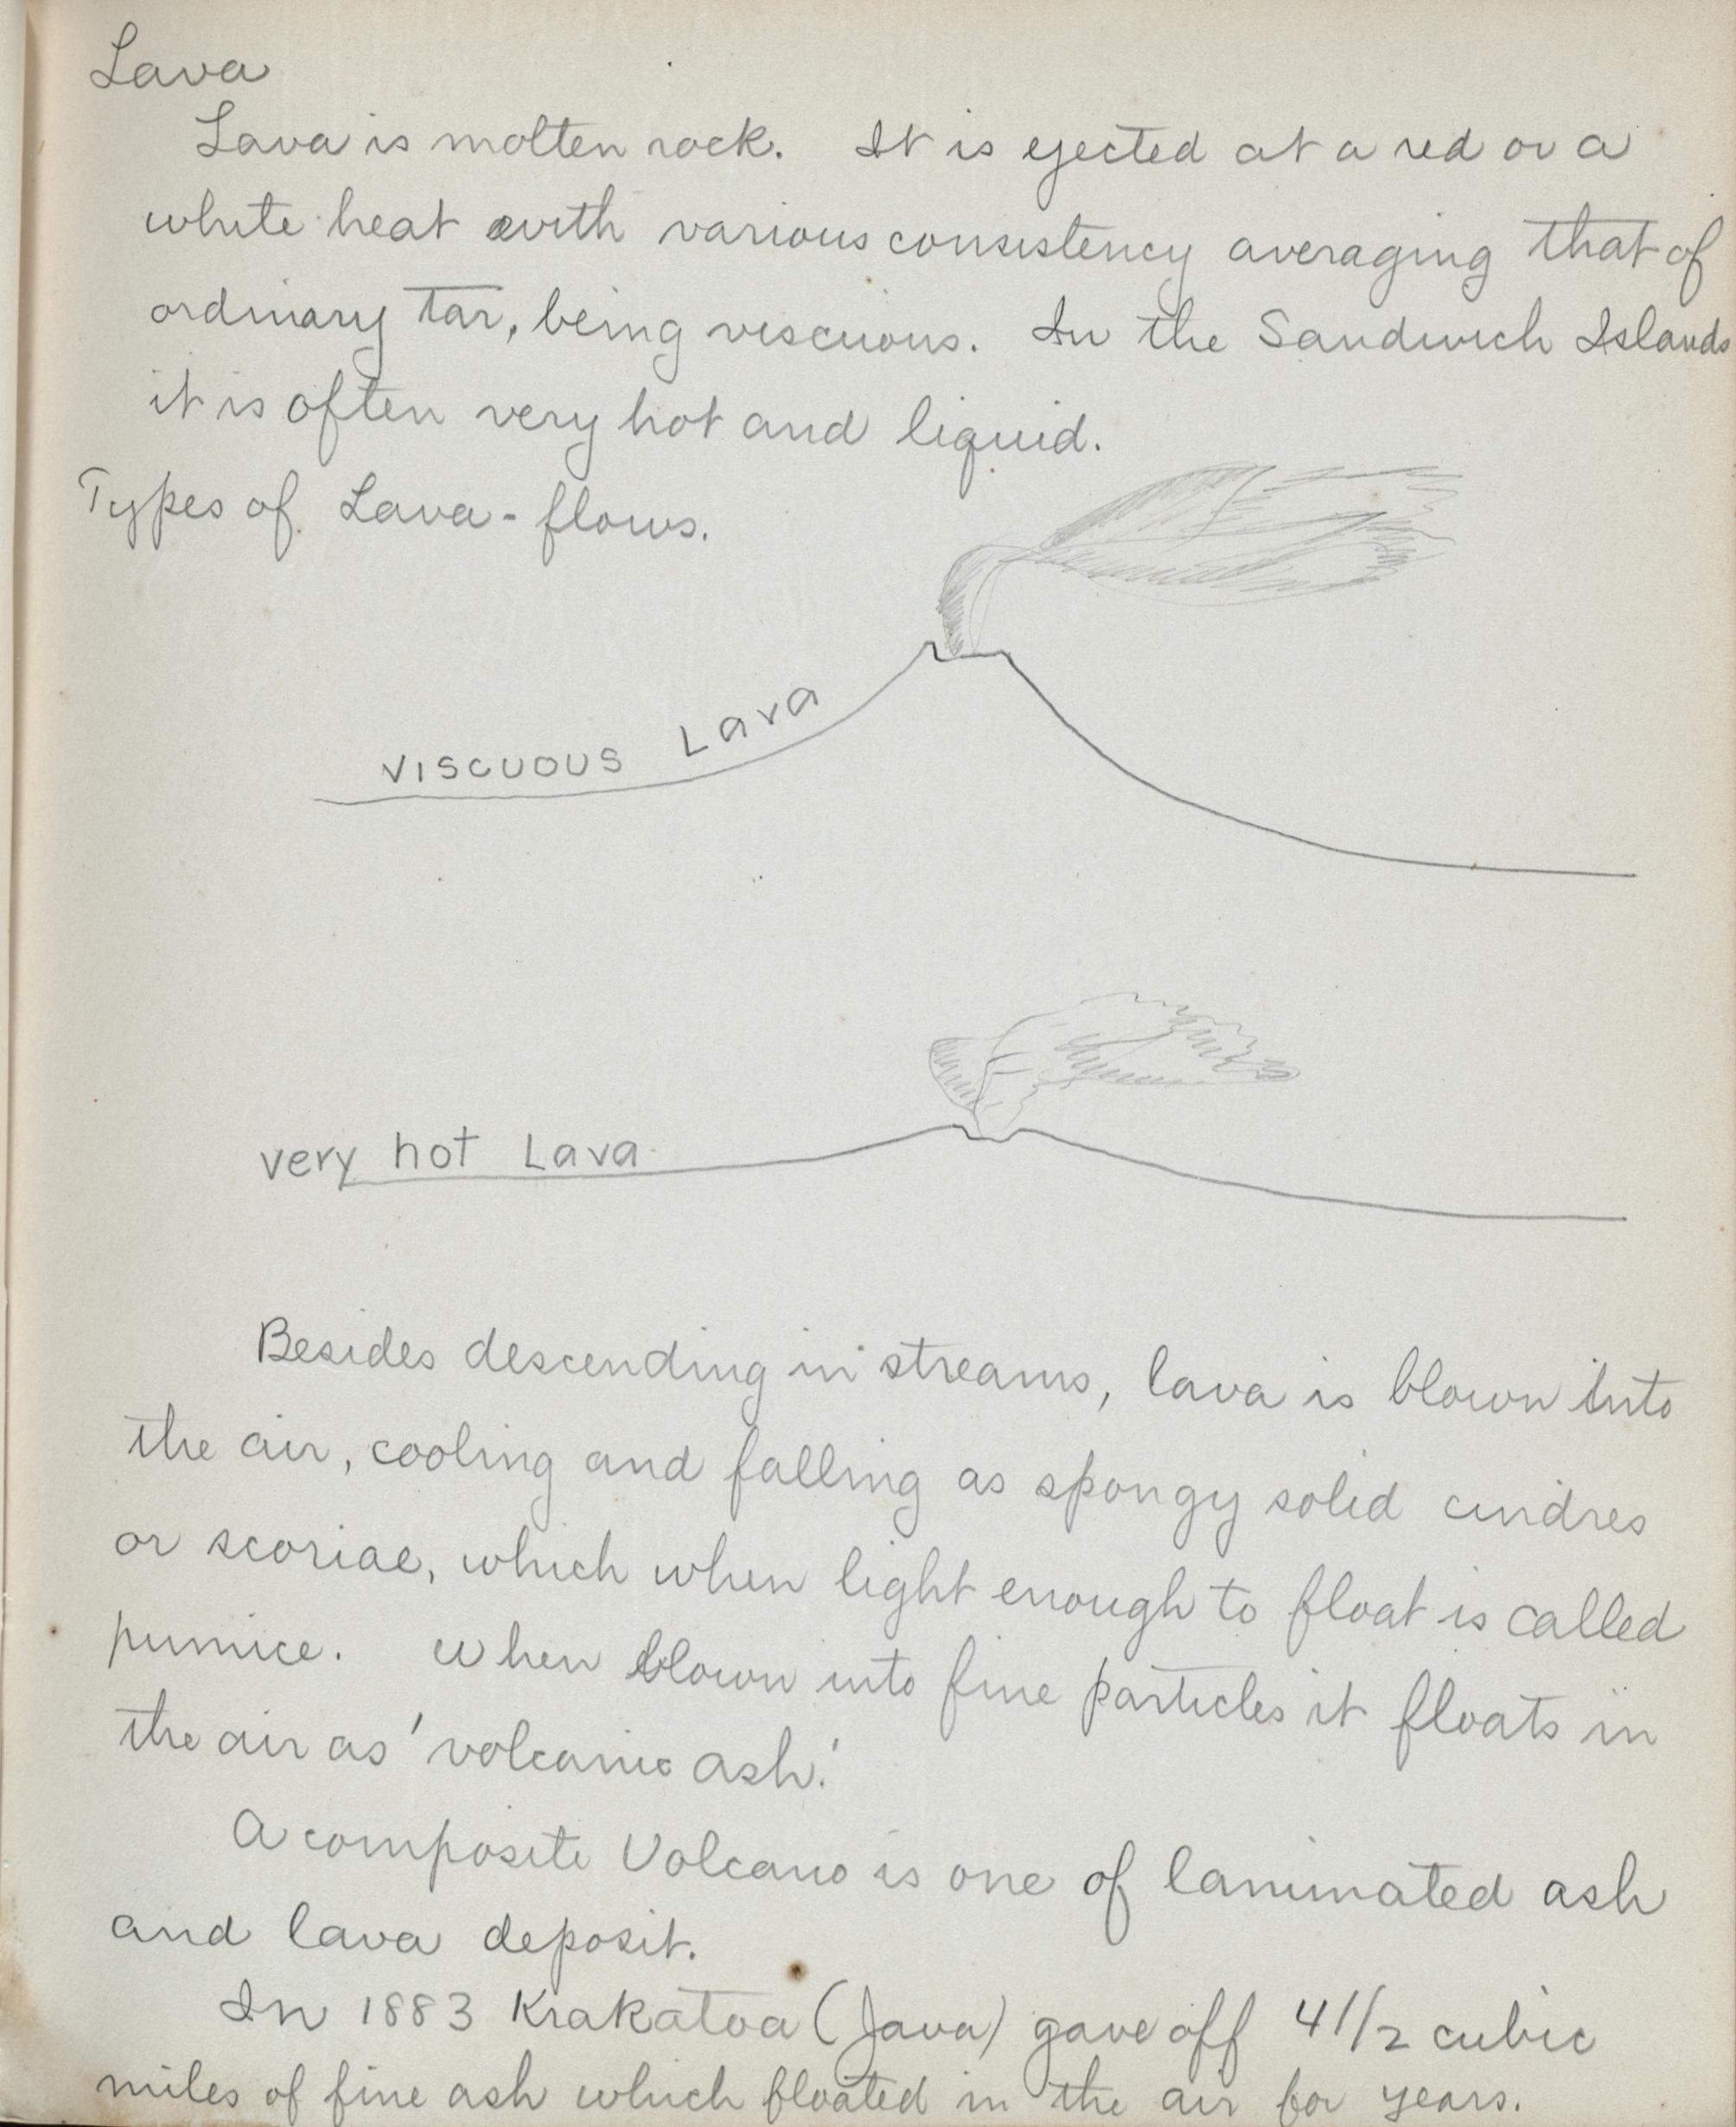 Lava
Lava is molten rock. It is ejected at a red or a
white heat with various consistency averaging that of
ordinary tar, being viscuous. In the Sandwich Islands
it is often very hot and liquid.
Types of Lava - flows.
VISCUOUS Lava
very hot Lava
Besides descending in streams, lava is blown into
the air, cooling and falling as spongy solid cindres
or scoriae, which when light enough to float is called
pumice. When blown into fine particles it floats in
the air as 'volcanic ash.'
A composite Volcano is one of laminated ash
and lava deposit.
In 1883 Krakatoa (Java) gave off 4 1/2 cubic
miles of fine ash which floated in the air for years.